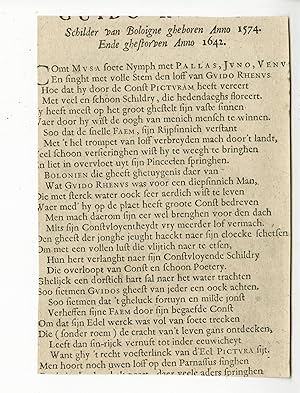 Schilder van Boloigne gheboren Anno 1574.
Ende ghestorven Anno 1642.
Omt MVSA soete Nymph met PALLAS, JVNO, VENV
En singht met volle Stem den loff van GVIDO RHENVS.
Hoe dat hy door de Const PICTVRAM heeft vereert
Met veel en schoon Schildry, die hedendaeghs floreert.
y heeft meest op het groot ghestelt sijn vaste sinnen
aer door hy wist de oogh van menich mensch te winnen.
Soo dat de snelle FAEM, sijn Rijpsinnich verstant
Met 't hel trompet van lof verbreyden mach door't landt,
eel schoon versieringhen wist hy te weegh'te bringhen
n liet in overvloet uyt sijn Pinceelen springhen.
BOLONIEN die gheeft ghetuygenis daer van
Wat GVIDO RHENVS was voor een diepsinnich Man,
Die met sterck water oock seer aerdich wist te leven
Waer med' hy op de plaet heeft groote Const bedreven
Men mach daerom sijn eer wel brenghen voor den dach
Mits sijn Constvloyentheydt vry meerder lof vermach.
en gheest der jonghe jeught haeckt naer sijn cloecke schetsen
Om met een vollen lust die vlijtich naer te etsen,
Hun hert verlanght naer sijn Constvloyende Schildry
Die overloopt van Const en schoon Poetery.
Ghelijck een dorstich hart sal naer het water trachten
Soo sietmen GVIDOS gheest van jeder een oock achten.
Soo sietmen dat 't gheluck fortuyn en milde jonst
Verheffen sijne FAEM door sijn begaefde Const
Om dat sijn Edel werck was vol van soete trecken
Die (sonder roem) de cracht van't leven gans ontdecken,
Leeft dan sin-rijck vernuft tot inder eeuwicheyt
Want ghy 't recht voesterlinck van d'Eel PICTVRA sijt.
Men hoort noch uwen loff op den Parnassus singhen